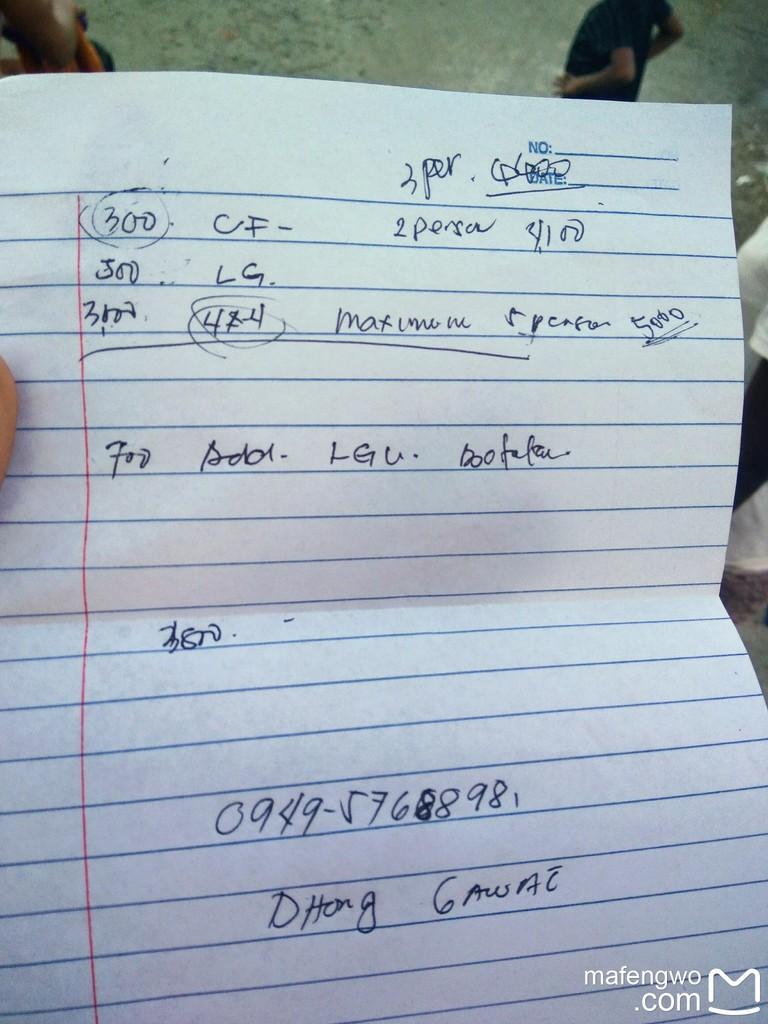 NO:
3 per.
DATE:
300. CF- 2 person 4,100
500.. LG.
3,000. 4x4 maximum 5 person 5000
700 Add. LGU.
3800. -
0949-5768898,
DHong GAWAE
mafengwo
.com